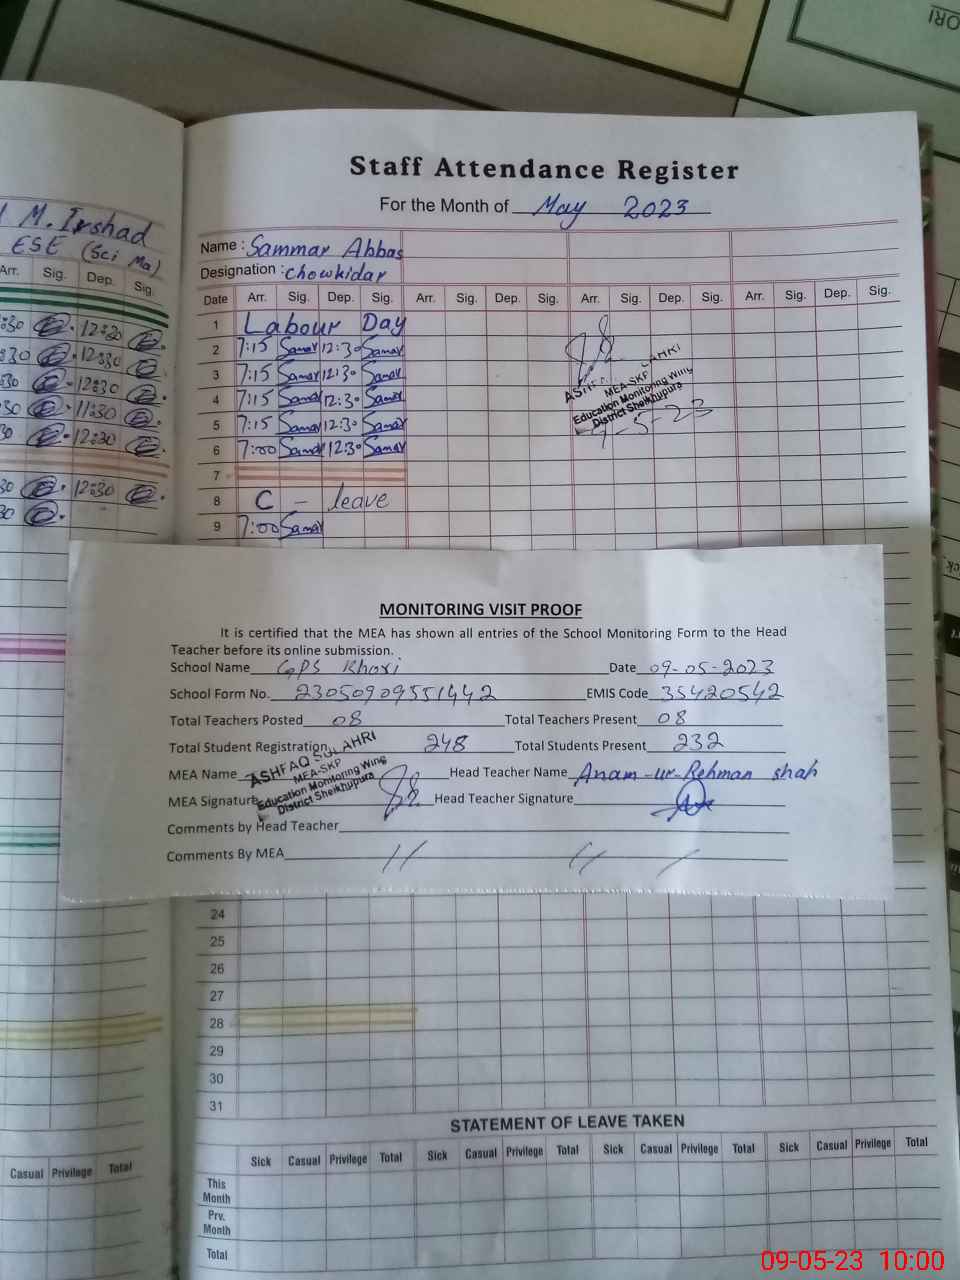 Staff Attendance Register
For the Month of May 2023
M. Irshad
ESE (Sci Ma)
Arr. Sig. Dep. Sig.
12:30
12:30
12:30
11:30
12:30
12:30
Name : Sammar Abbas
Designation : Chowkidar
Date Arr. Sig. Dep. Sig. Arr. Sig. Dep. Sig. Arr. Sig. Dep. Sig. Arr. Sig. Dep. Sig.
1 Labour Day
2 7:15 Samar 12:30 Samar
3 7:15 Samar 12:30 Samar
4 7:15 Samar 12:30 Samar
5 7:15 Samar 12:30 Samar
6 7:00 Samar 12:30 Samar
7
8 C - leave
9 7:00 Samar
MEA-SKP
Education Monitoring Wing
District Sheikhupura
9-5-23
MONITORING VISIT PROOF
It is certified that the MEA has shown all entries of the School Monitoring Form to the Head
Teacher before its online submission.
School Name GPS Khori Date 09-05-2023
School Form No. 23050909551442 EMIS Code 35420542
Total Teachers Posted 08 Total Teachers Present 08
Total Student Registration 248 Total Students Present 232
MEA Name ASHFAQ SULAHRI Head Teacher Name Anam-ur-Rehman shah
MEA-SKP
Education Monitoring Wing
District Sheikhupura
MEA Signature Head Teacher Signature
Comments by Head Teacher
Comments By MEA
24
25
26
27
28
29
30
31
STATEMENT OF LEAVE TAKEN
Casual Privilege Total
Sick Casual Privilege Total Sick Casual Privilege Total Sick Casual Privilege Total Sick Casual Privilege Total
This
Month
Prv.
Month
Total
09-05-23 10:00